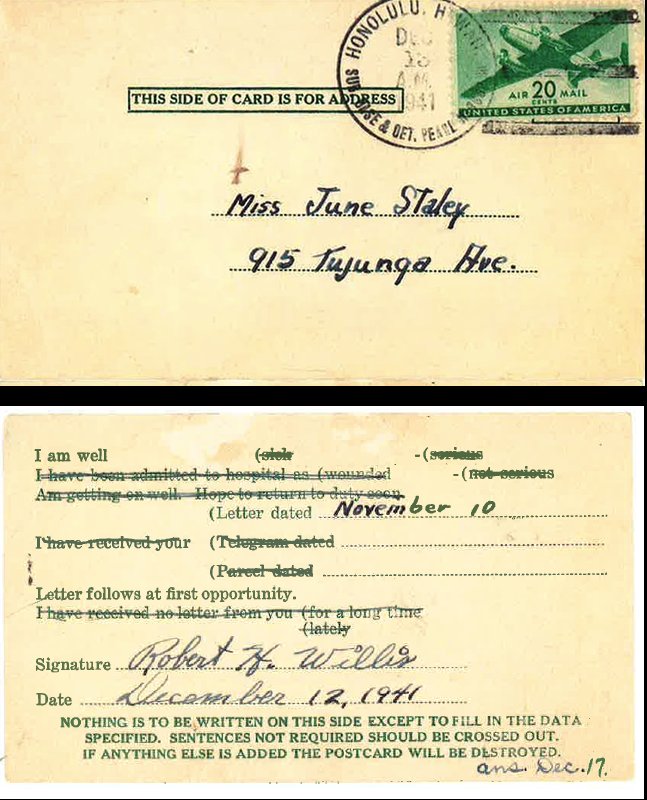 HONOLULU, HAWAII
DEC
A.M.
1941
SUB. BASE & DET. PEARL
AIR 20 MAIL
CENTS
UNITED STATES OF AMERICA
THIS SIDE OF CARD IS FOR ADDRESS
Miss June Staley
915 Tujunga Ave.
I am well (sick -(serious
I have been admitted to hospital as (wounded -(not serious
Am getting on well. Hope to return to duty soon.
(Letter dated November 10
I have received your (Telegram dated
(Parcel dated
Letter follows at first opportunity.
I have received no letter from you (for a long time
(lately
Signature Robert H. Willis
Date December 12, 1941
NOTHING IS TO BE WRITTEN ON THIS SIDE EXCEPT TO FILL IN THE DATA
SPECIFIED. SENTENCES NOT REQUIRED SHOULD BE CROSSED OUT.
IF ANYTHING ELSE IS ADDED THE POSTCARD WILL BE DESTROYED.
ans. Dec. 17.